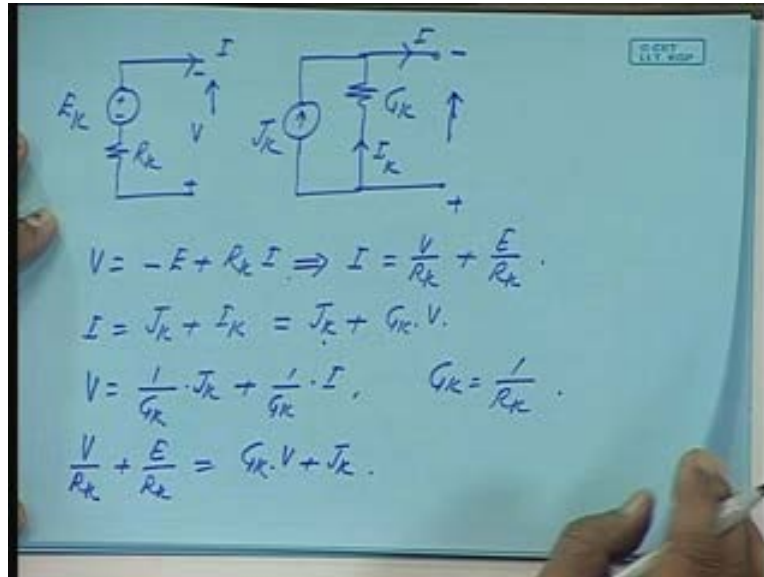 I I
E_K + - R_k V - + J_K G_K I_K - +
V = -E + R_k I ⇒ I = V/R_k + E/R_k .
I = J_K + I_K = J_K + G_K . V.
V = 1/G_K . J_K + 1/G_K . I , G_K = 1/R_k .
V/R_k + E/R_k = G_K . V + J_K .